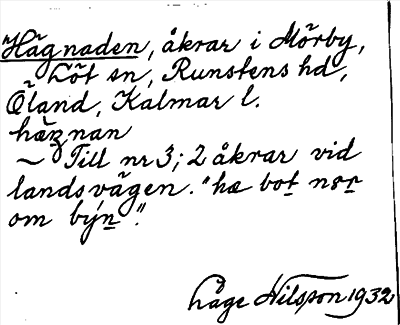 Hägnaden, åkrar i Mörby,
Löt sn, Runstens hd,
Öland, Kalmar l.
hæznan
~ Till nr 3; 2 åkrar vid
landsvägen. "hæ bot nør
om býn".
Håge Nilsson 1932